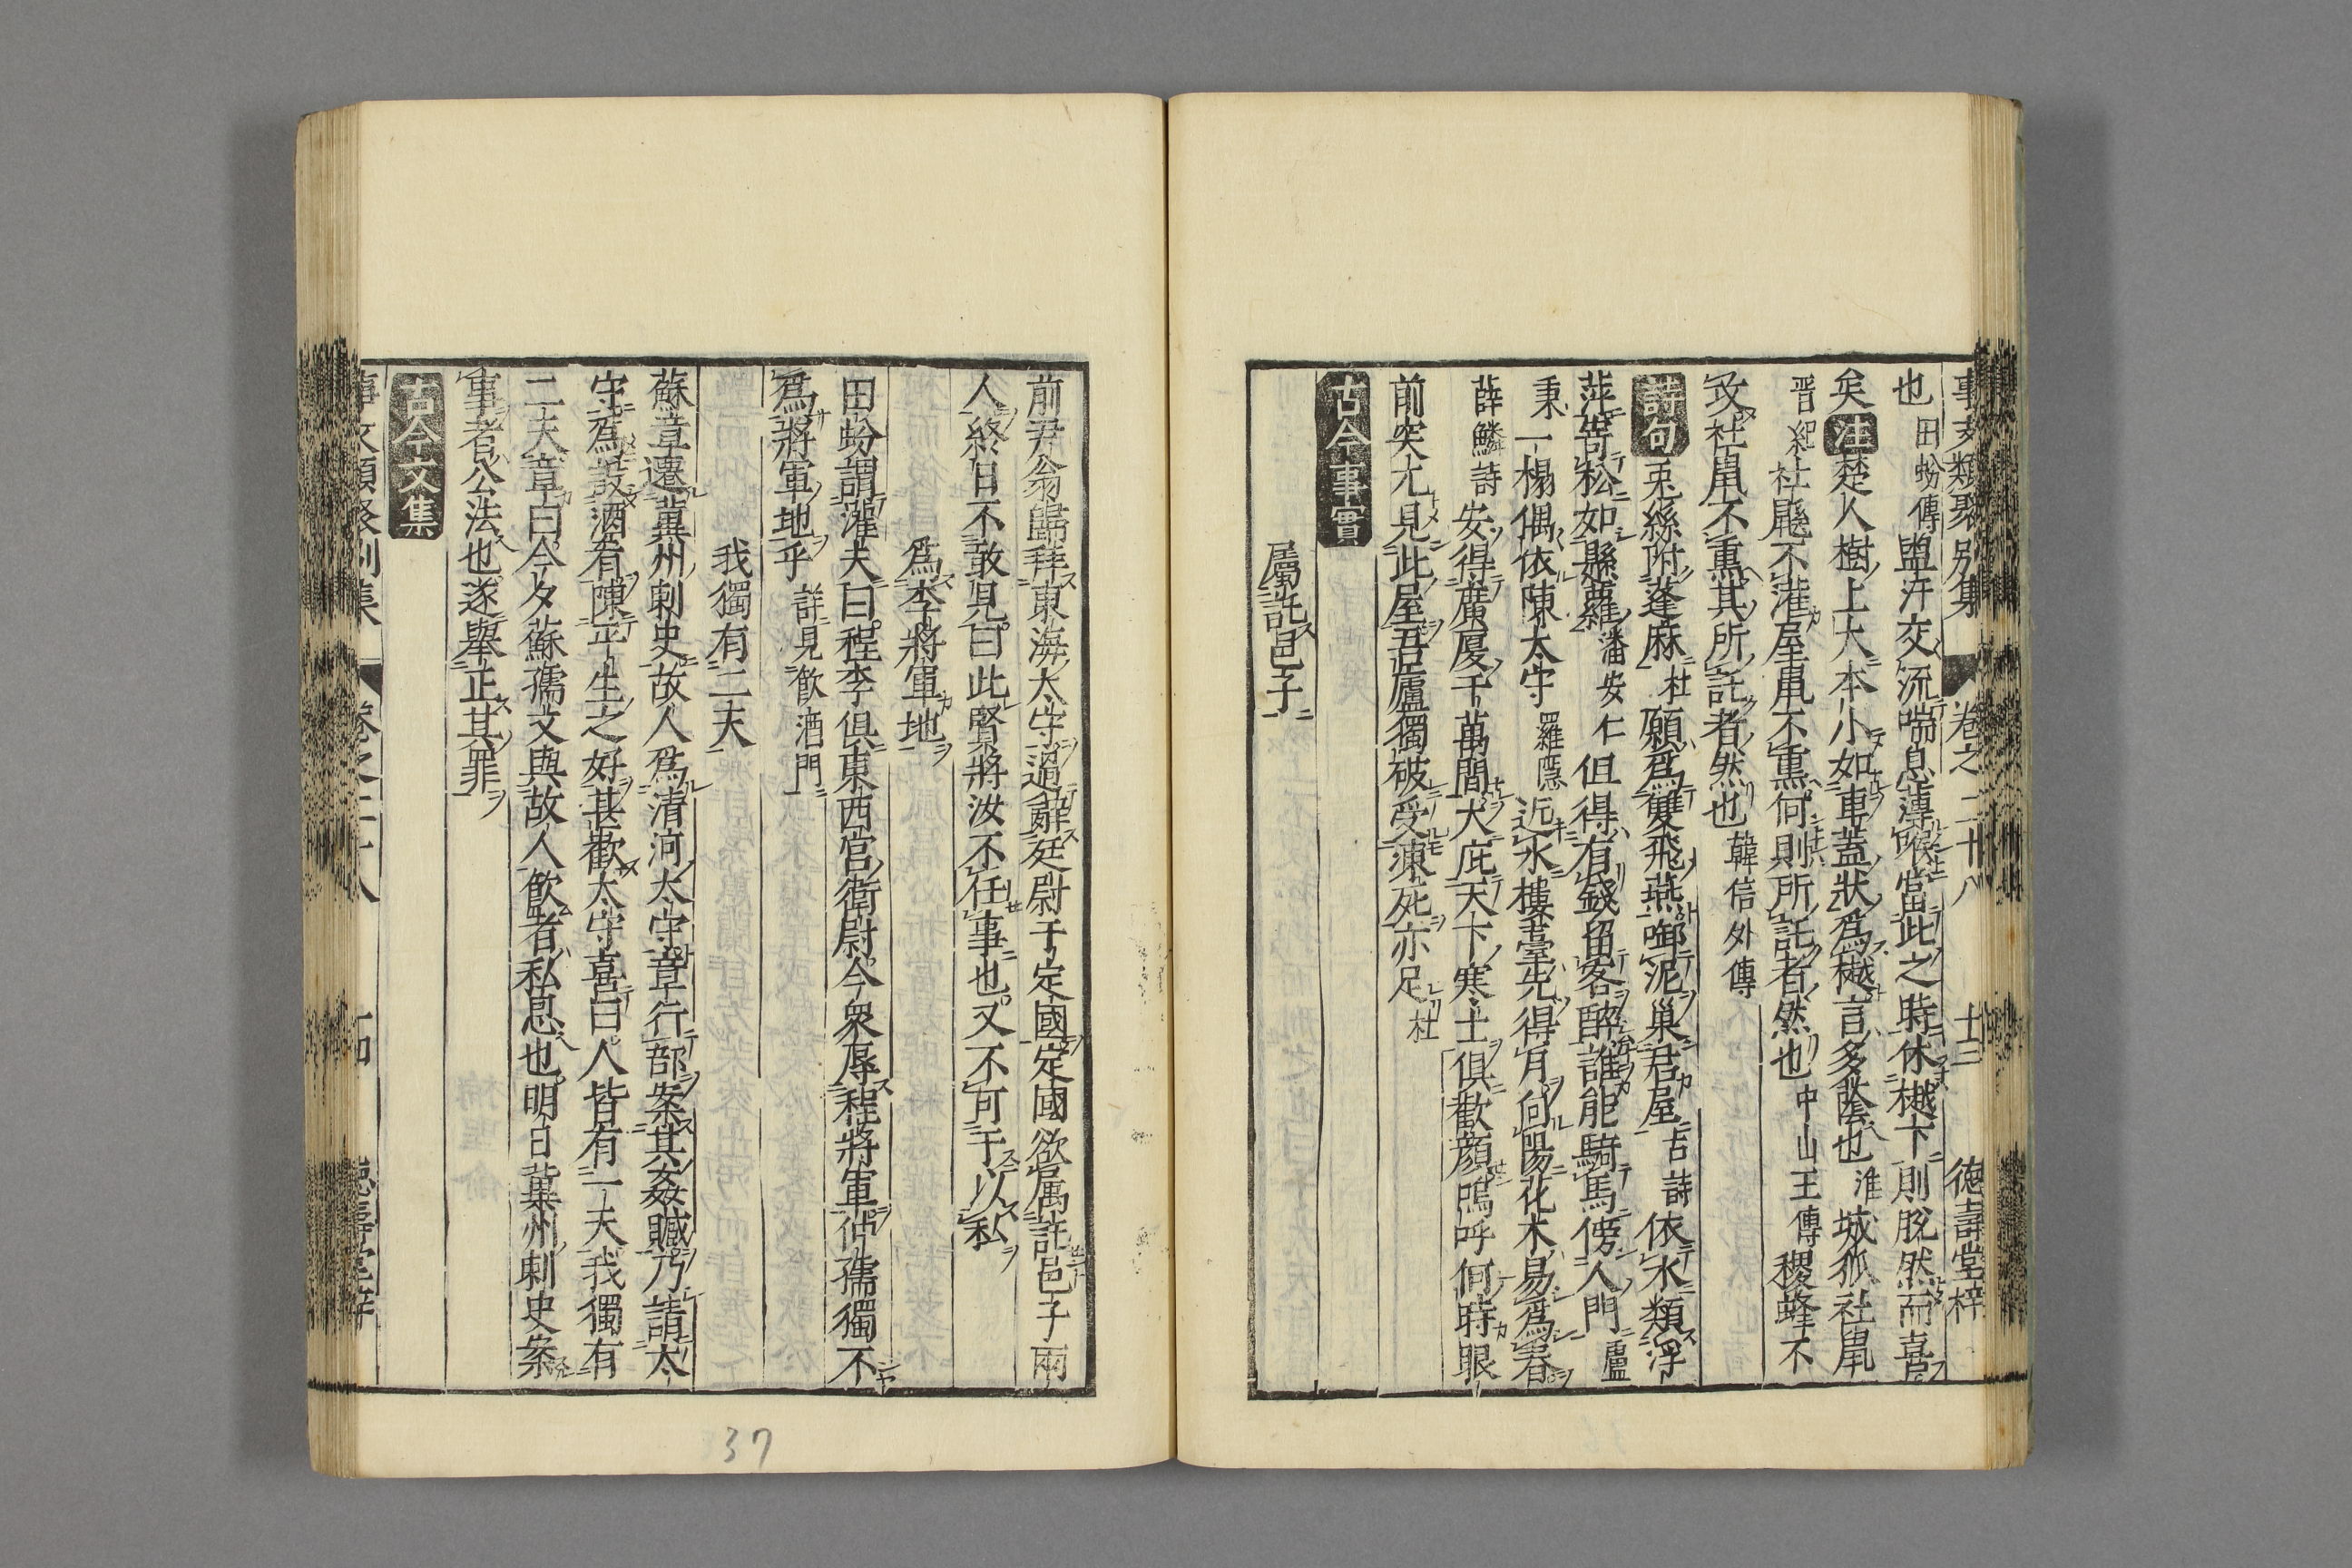 事文類聚別集 卷之二十八 十三 德壽堂梓
也田蚡傳盬汗交流喘息薄喉當此之時休樾下則脫然而喜
矣注楚人樹上大本小如車蓋狀爲樾言多蔭也淮城狐社鼠
晋紀社鼷不灌屋鼠不熏何則所託者然也中山王傳稷蜂不
攻社鼠不熏其所託者然也韓信外傳
詩句兎絲附蓬麻杜願爲雙飛燕啣泥巢君屋古詩依水類浮
萍寄松如懸蘿潘安仁但得有錢留客醉誰能騎馬傍人門盧
秉一榻偶依陳太守羅隱近水樓臺先得月向陽花木易爲春
薛鱗詩安得廣厦千萬間大庇天下寒士俱歡顏嗚呼何時眼
前突兀見此屋吾廬獨破受凍死亦足杜
古今事實
屬託邑子
前尹翁歸拜東海太守過辭廷尉于定國定國欲属託邑子兩
人終日不敢見曰此賢將汝不任事也又不可干以私
爲李將軍地
田蚡謂灌夫曰程李俱東西宮衛尉今衆辱程將軍仲孺獨不
爲李將軍地乎詳見飲酒門
我獨有二天
蘇章遷冀州刺史故人爲清河太守章行部案其姦贓乃請太
守爲設酒肴陳平生之好甚歡太守喜曰人皆有一天我獨有
二天章曰今夕蘇孺文與故人飲者私恩也明日冀州刺史案
事者公法也遂舉正其罪
古今文集
事文類聚別集 卷之二十八 十四 德壽堂梓
37